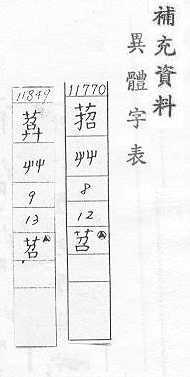 補充資料
異體字表
11770
菬
艸
8
12
苕
11849
艸
9
13
苕